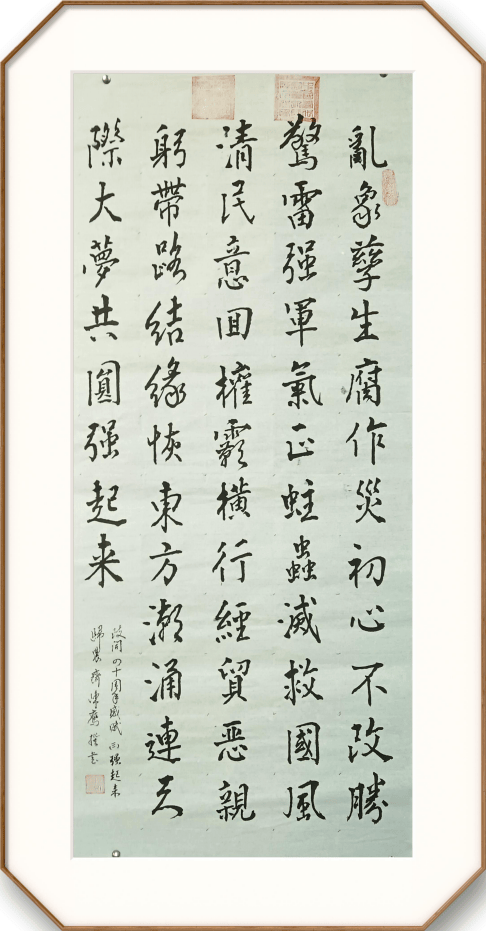 亂象孽生腐作災初心不改勝
驚雷强軍氣正蛀蟲滅救國風
清民意囬權霸橫行經貿惡親
躬帶路結緣恢東方潮涌連天
際大夢共圓强起来
改開四十周年感賦 强起来